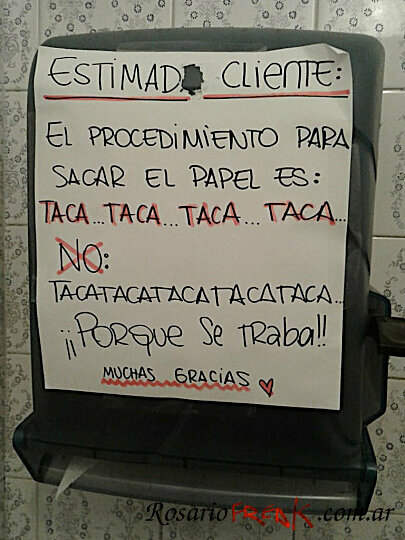 ESTIMAD CLIENTE:
EL PROCEDIMIENTO PARA
SACAR EL PAPEL ES:
TACA...TACA...TACA...TACA...
NO:
TACATACATACATACATACA...
¡¡PORQUE SE TRABA!!
MUCHAS GRACIAS
RosarioFREAK.com.ar